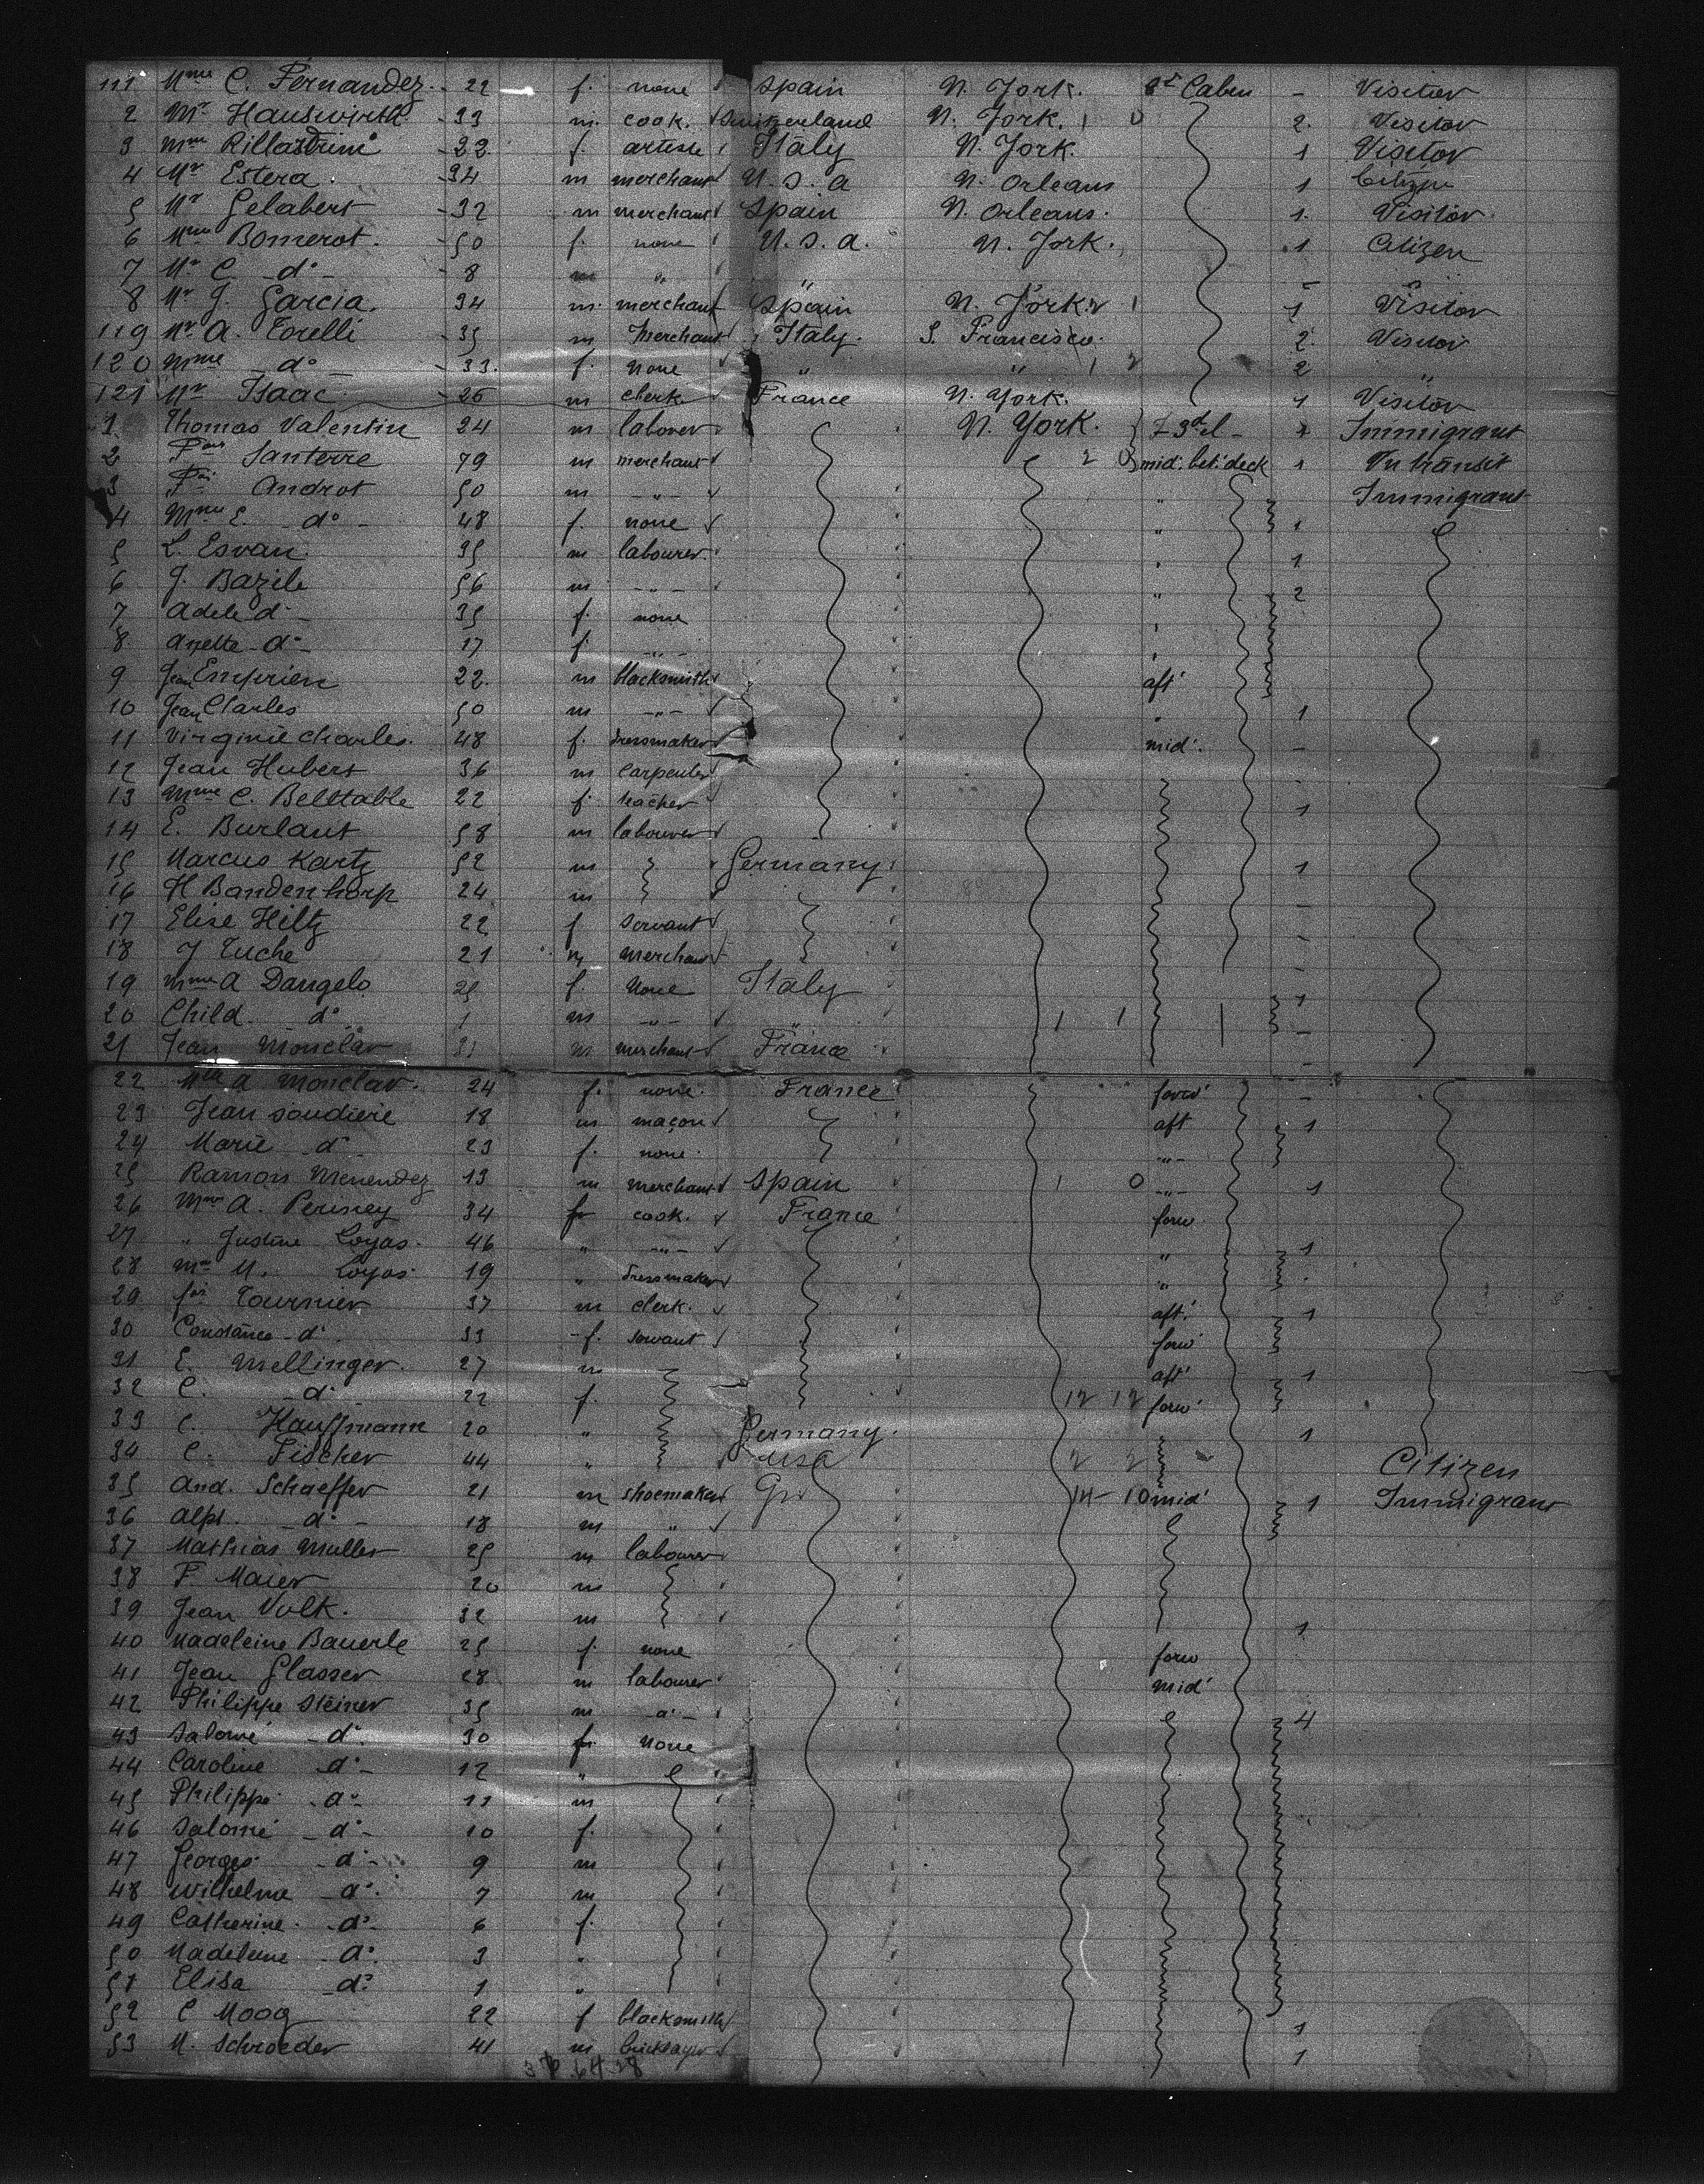 111 Mme C. Fernandez. 22 f. none Spain N. York. 2d Cabin - Visitor
2 Mr Hauswirth 33 m. cook. Switzerland N. York. 1 0 2. Visitor
3 Mme Rillastrini 22. f. artiste Italy N. York. 1 Visitor
4 Mr Estera. 34 m merchant U.S.a N. Orleans 1 Citizen
5 Mr Gelabert 32 m merchant Spain N. Orleans. 1. Visitor.
6 Mme Bomerot. 50 f. none U.S.a. N. York. 1 Citizen
7 Mr C - do - 8 m " " - "
8 Mr J. Garcia. 34 m. merchant Spain N. York. 1 1 Visitor
119 Mr A. Torelli 35 m Merchant Italy. S. Francisco. 2. Visitor
120 Mme - do - 33. f. none " " 2 "
121 Mr Isaac 26 m clerk. France N. York. 1 Visitor
1 Thomas Valentin 24 m laborer N. York. Immigrant
2 Santerre 79 m merchant mid. bet. deck 1 In transit
3 Androt 50 m -"- " Immigrant
4 Mme E. - do - 48 f. none " 1
5 L. Esvan. 35 m labourer. " 1
6 J. Bazile 56 m -"- " 2
7 Adele do - 35 f. none "
8 do - 17 f. -"- "
9 Jean Emprien 22. m blacksmith aft
10 Jean Charles 50 m -"- " 1
11 Virginie Charles. 48 f. dressmaker mid. -
12 Jean Hubert 36 m carpenter -
13 Mme C. Belttable 22 f. teacher 1
14 E. Burlant 58 m labourer -
15 Marcus Kartz 52 m Germany. 1
16 H Bandenhorp 24 m -
17 Elise Hiltz 22 f servant -
18 J Tuche 21 m merchant -
19 Mme A Dangelo 25 f. None Italy 1
20 Child. do 1 m -"- " 1 1 -
21 Jean Monclar 31 m merchant France -
22 Mme A Monclar. 24 f. none. France forw -
23 Jean Soudiere 18 m maçon aft 1
24 Marie - do - 23 f. none. -"-
25 Ramon Menendez 13 m merchant Spain 1 0 -"- 1
26 Mme A. Periney 34 f cook. France forw
27 " Justine Loyas. 46 " -"- " 1
28 M. Loyas 19 " dressmaker "
29 Tournier 37 m clerk. aft. 1
30 Constance - do 33 f. servant forw
31 E. Mellinger. 27 m aft 1
32 C. - do 22 f. 12 12 forw
33 C. Kauffmann 20 " Germany. 1
34 C. Fischer 44 " usa 2 2 Citizen
35 And. Schaeffer 21 m shoemaker Gr 14 - 10 mid 1 Immigrant
36 Alph. - do - 18 m "
37 Mathias Muller 25 m labourer
38 F. Maier 20 m
39 Jean Volk. 32 m 1
40 Madeleine Bauerle 25 f. none forw
41 Jean Glasser 28. m labourer mid
42 Philippe Steiner 35 m - do - 4
43 Salomé - do. 30 f none
44 Caroline do - 12 "
45 Philippe - do - 11 m
46 Salomé - do - 10 f.
47 Georges - do - 9 m
48 Wilhelme do. 7 m
49 Catherine. - do - 6 f.
50 Madeleine - do. 3 "
51 Elisa - do 1 "
52 C Moog 22 f blacksmith 1
53 M. Schroeder 41 m bricklayer 1